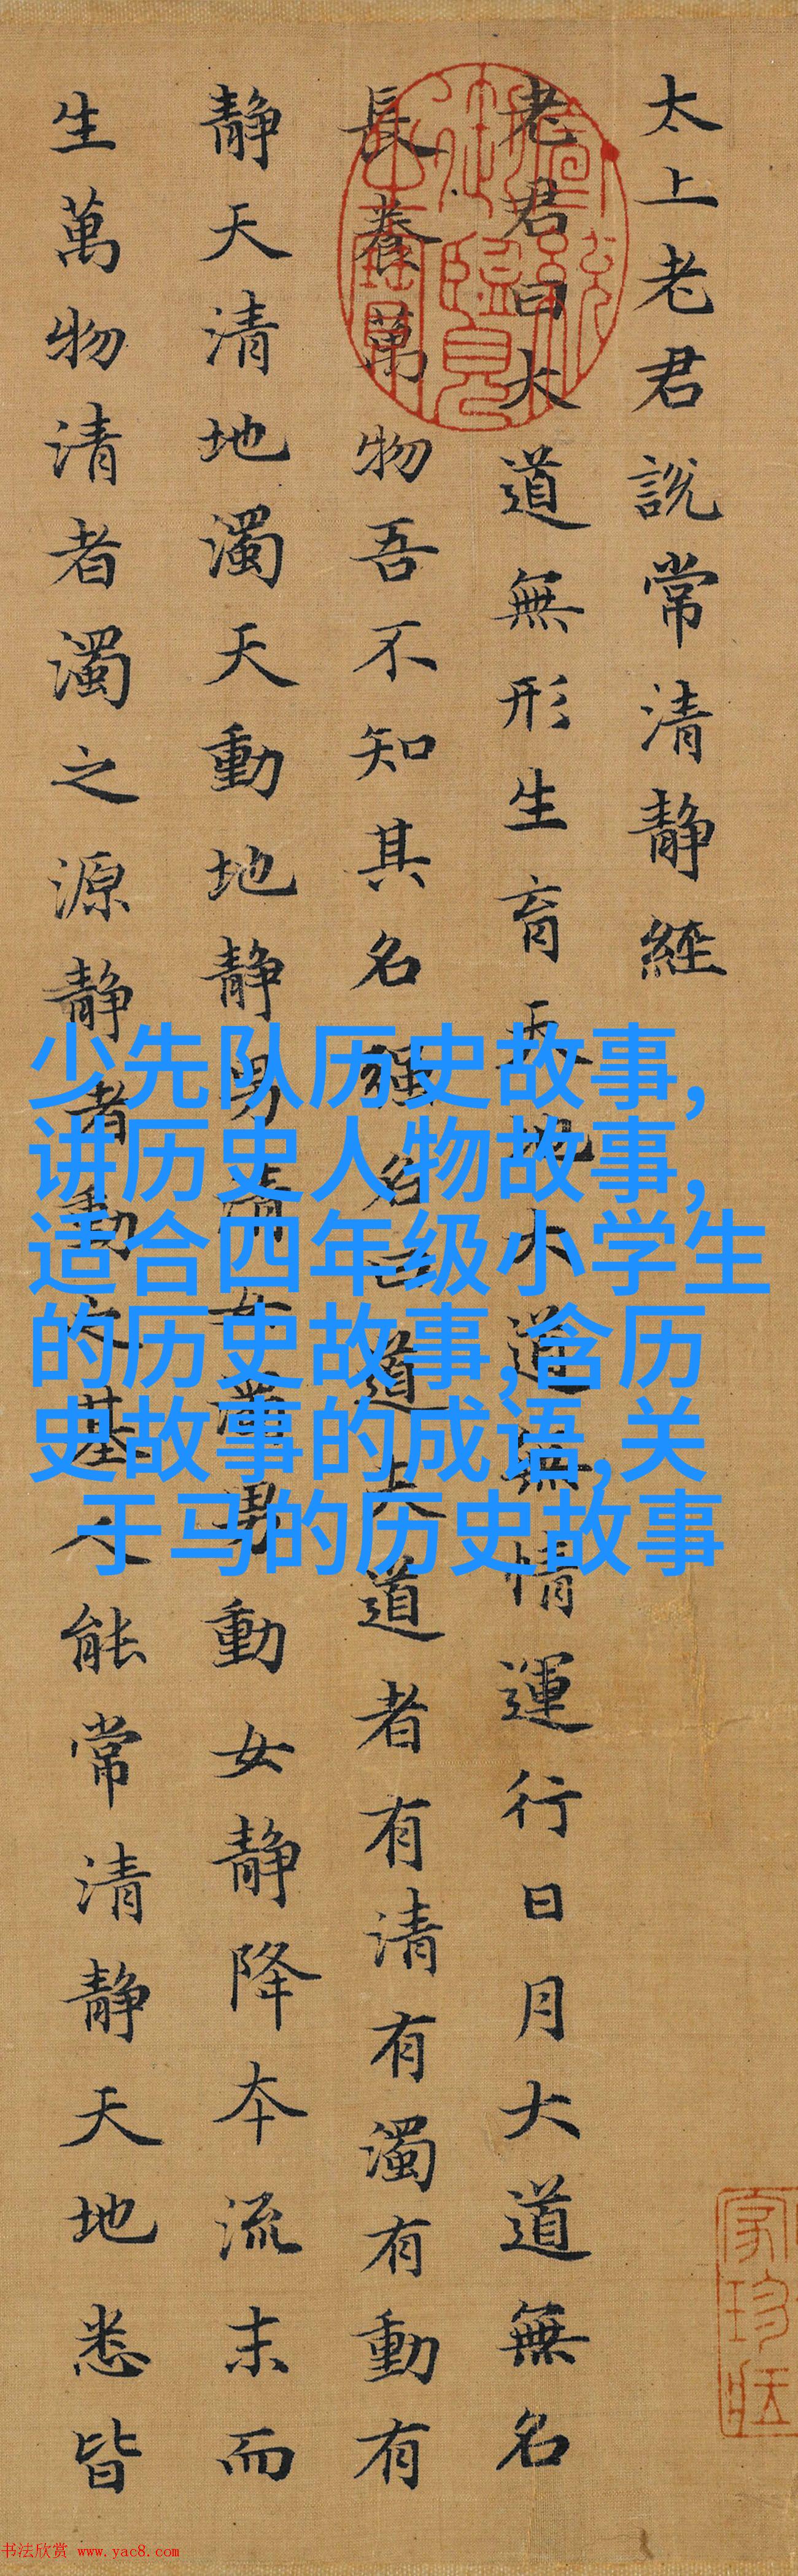 太上老君說常清静經
老君曰大道無形生育天地大道無情運行日月大道無名
長養萬物吾不知其名強名曰道夫道者有清有濁有動有
静天清地濁天動地静男清女濁男動女静降本流末而
生萬物清者濁之源静者動之基人能常清静天地悉皆
少先队历史故事,
讲历史人物故事,
适合四年级小学生
的历史故事,含历
史故事的成语,关
于马的历史故事
書法欣赏 www.yac8.com